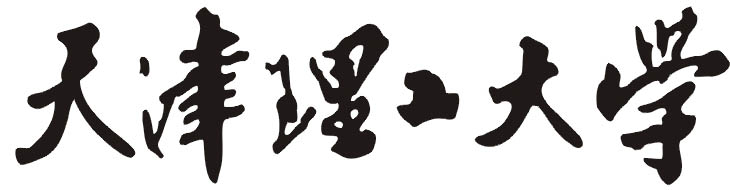 天津理工大学